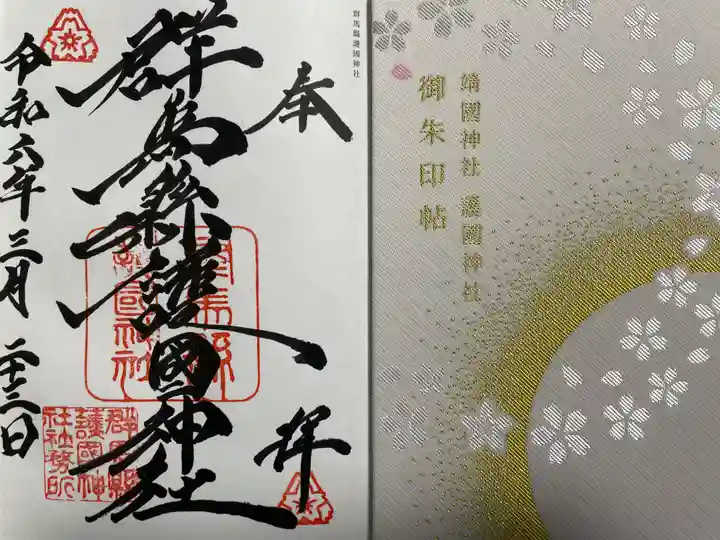 群馬縣護國神社
奉拝
群馬縣護國神社
令和六年三月二十三日
群馬縣
護國神
社社務所
靖國神社 護國神社
御朱印帖